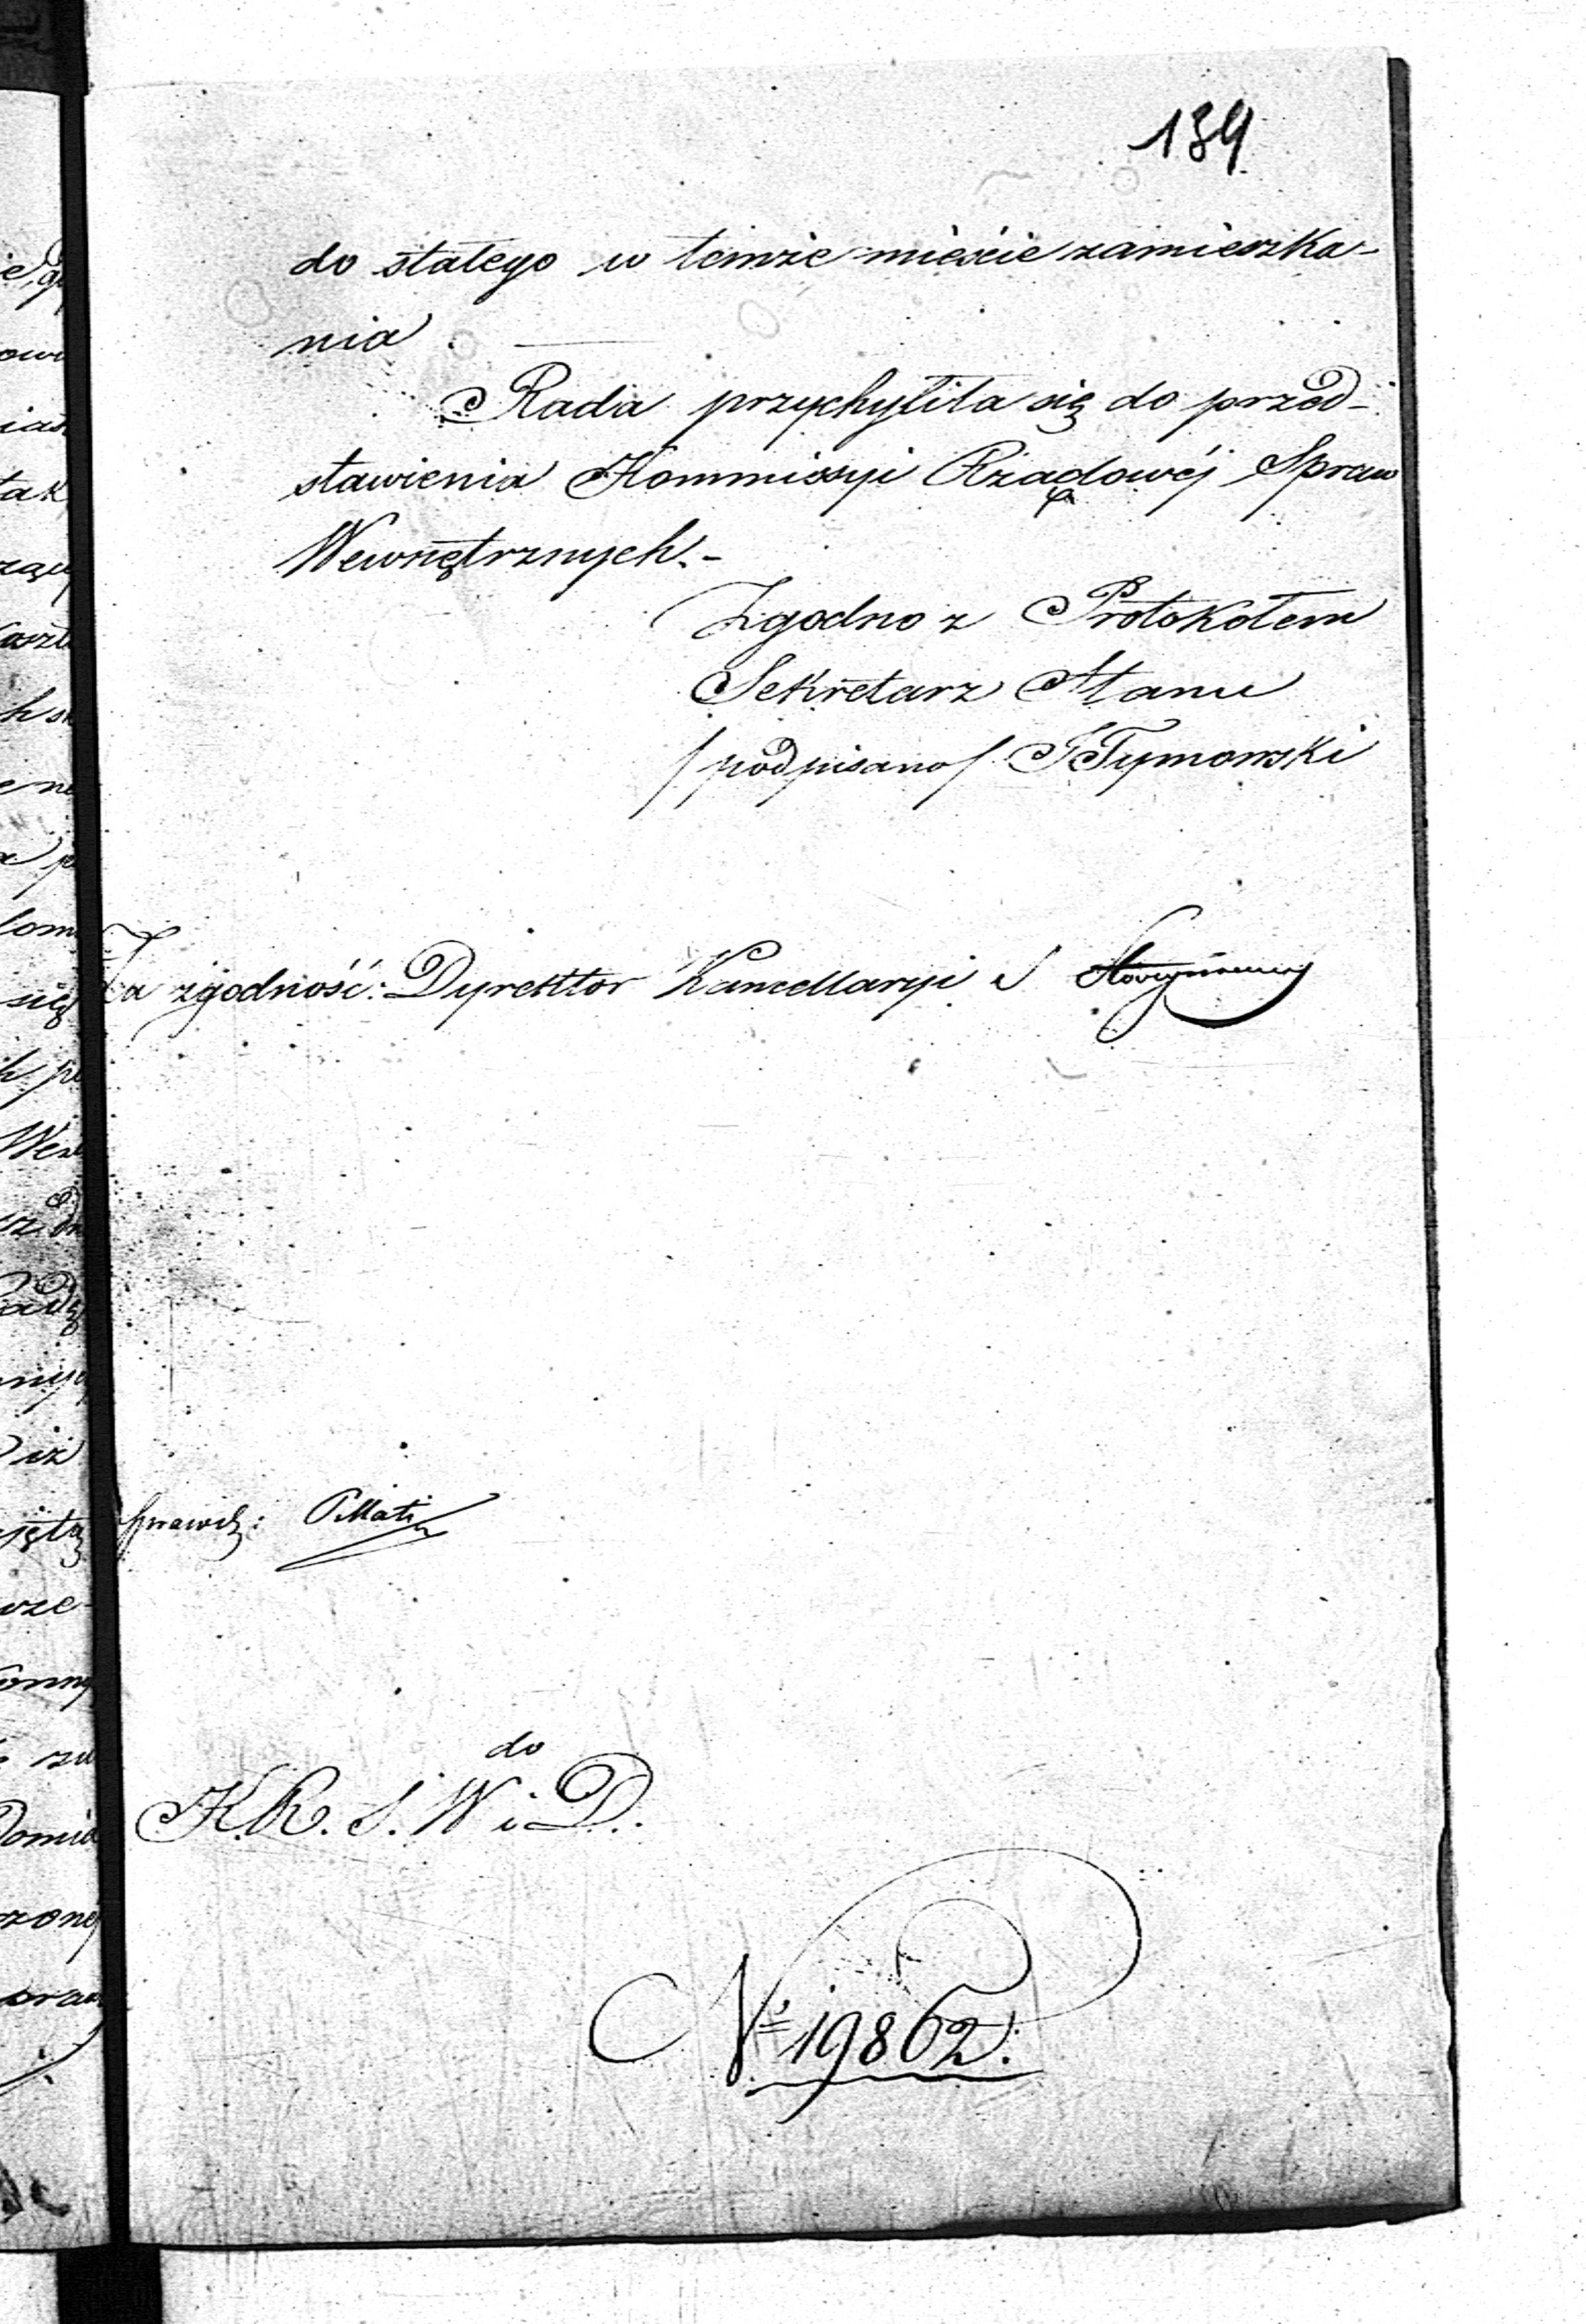 139
do stałego w temże mieście zamieszka-
nia.
Rada przychyliła się do przed-
stawienia Kommissyi Rządowéj Spraw
Wewnętrznych.-
Zgodno z Protokołem
Sekretarz Stanu
/podpisano/ Tymowski
Za zgodność: Dyrektor Kancellaryi
Sprawdz:
do
K.R.S.W i D.
№ 19862.